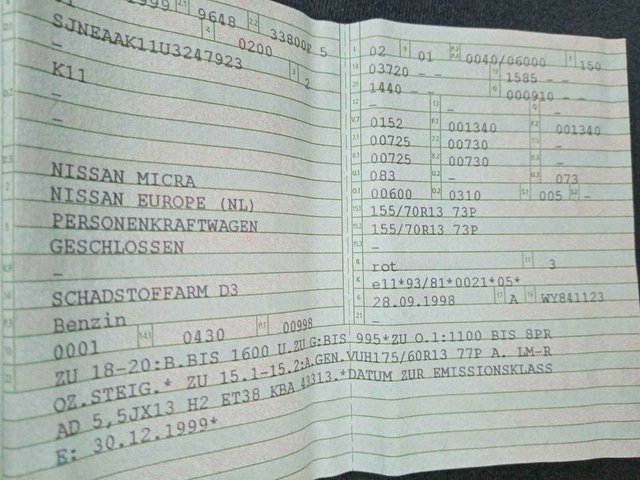 1999 2.1 9648 2.2 33800F 5
SJNEAAK11U3247923 4 0200 3 2
–
K11
–
–
NISSAN MICRA
NISSAN EUROPE (NL)
PERSONENKRAFTWAGEN
GESCHLOSSEN
–
SCHADSTOFFARM D3
Benzin
0001 14.1 0430 P.1 00998
L 02 9 01 P.2 P.4 0040/06000 T 150
18 03720 – – 19 1585 – –
20 1440 – – G 000910 – –
12 – 13 – Q –
V.7 0152 F.1 001340 F.2 001340
7.1 00725 7.2 00730 7.3 –
8.1 00725 8.2 00730 8.3 –
U.1 083 U.2 – U.3 073
O.1 00600 O.2 0310 S.1 005 S.2 –
15.1 155/70R13 73P
15.2 155/70R13 73P
15.3 –
R rot 11 3
K e11*93/81*0021*05*
6 28.09.1998 17 A 16 WY841123
21 –
ZU 18-20:B.BIS 1600 U.ZU G:BIS 995*ZU O.1:1100 BIS 8PR
OZ.STEIG.* ZU 15.1-15.2:A.GEN.VUH175/60R13 77P A. LM-R
AD 5,5JX13 H2 ET38 KBA 43313.*DATUM ZUR EMISSIONSKLASS
E: 30.12.1999*